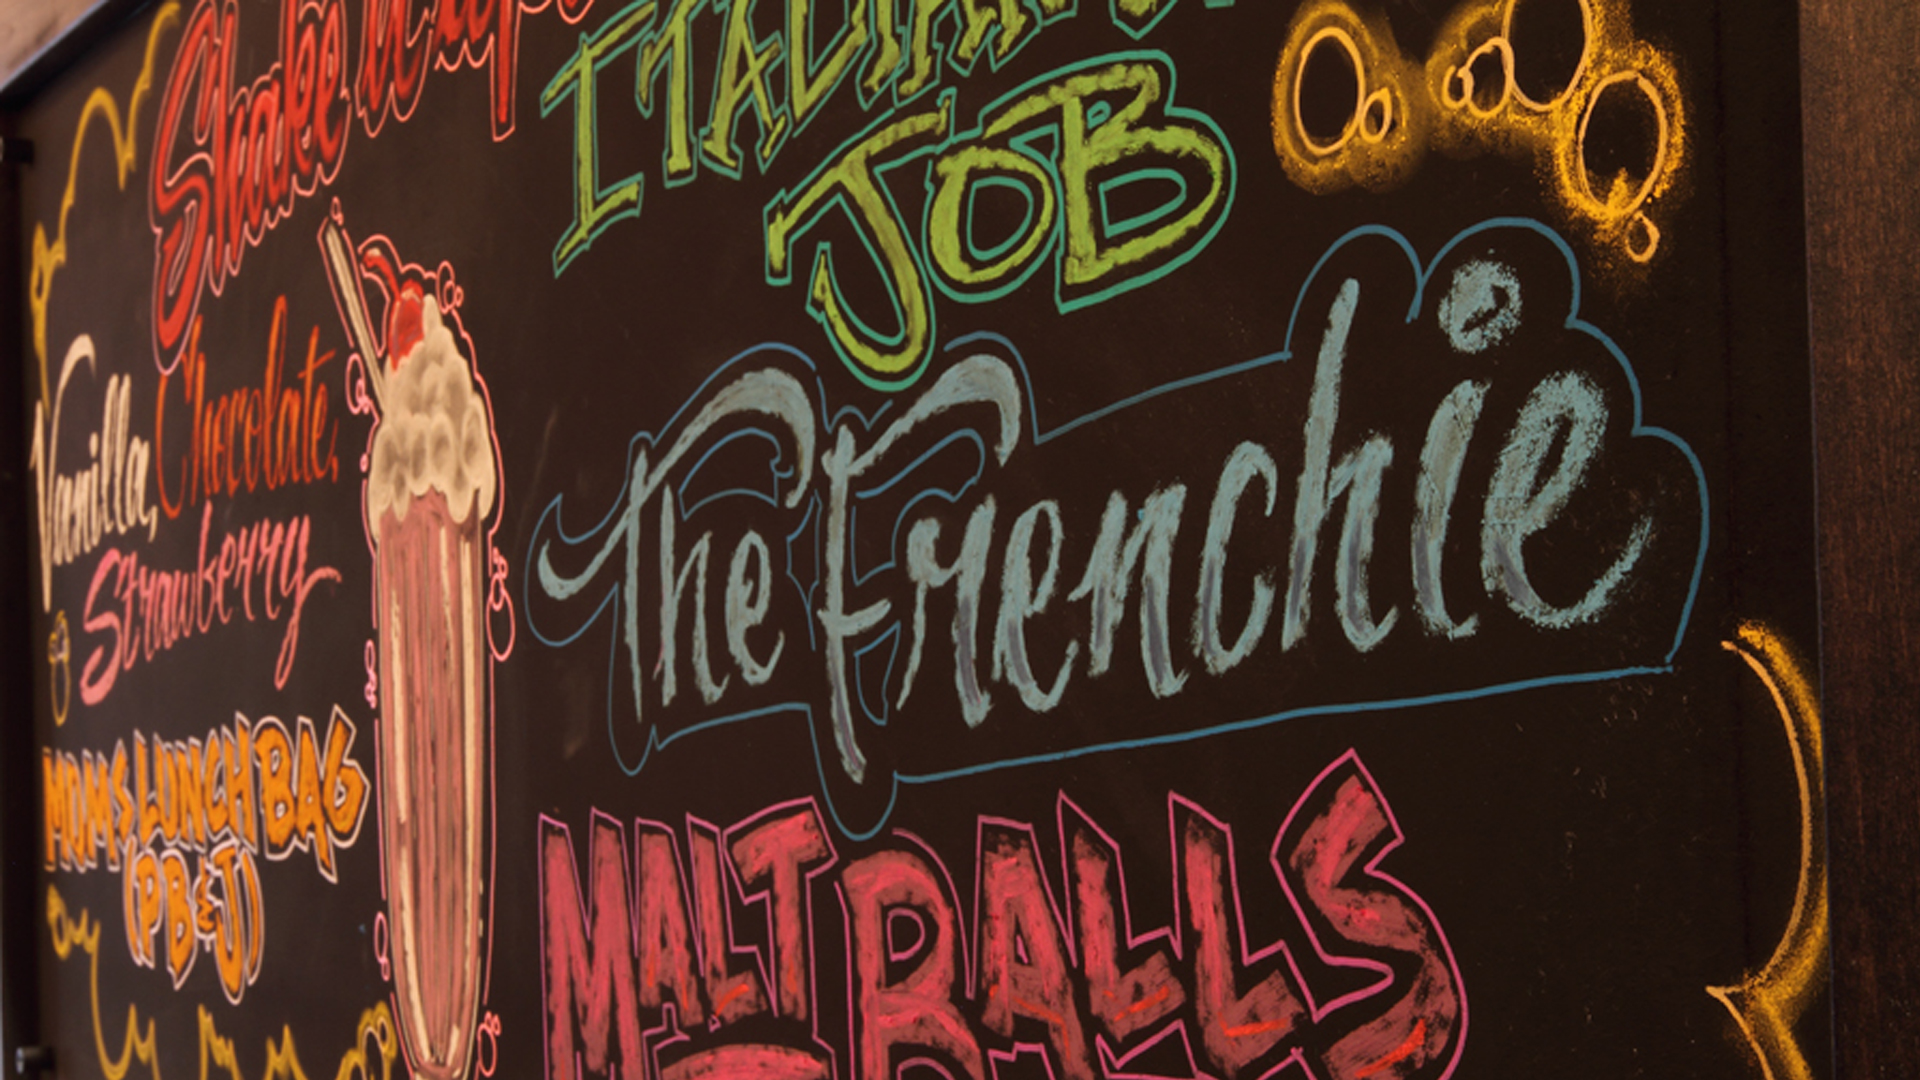 Shake it up
Vanilla, Chocolate,
Strawberry
MOMS LUNCH BAG
(PB&J)
ITALIAN
JOB
The Frenchie
MALT BALLS